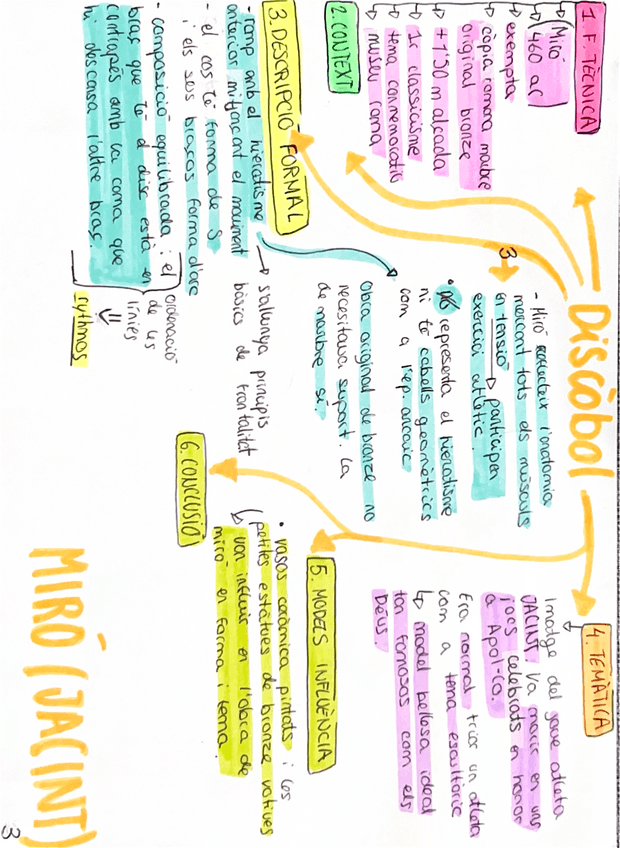 Discòbol
1. F. TÈCNICA
Miró
460 aC
exempta
còpia romana marbre
original bronze
+ 1'50 m alçada
1r classicisme
tema commemoratiu
museu romà
2. CONTEXT
3. DESCRIPCIÓ FORMAL
- romp amb el hieratisme
anterior mitjançant el moviment
- el cos té forma de S
i els seus braços forma d'arc
- composició equilibrada: el
braç que té el disc està en
contrapès amb la cama que
hi descansa l'altre braç.
ordenació
de les
línies
rythmos
→ s'allunya principis
bàsics de frontalitat
3
- Miró
marcant tots els músculs
en tensió → participen
exercici atlètic.
• No representa el hieratisme
ni té cabells geomètrics
com a l'ep. arcaic
obra original de bronze no
necesitava suport. La
de marbre sí.
4. TEMÀTICA
Imatge del jove atleta
JACINT. Va morir en uns
jocs celebrats en honor
a Apol·lo.
Era normal triar un atleta
com a tema escultòric
↳ model bellesa ideal
tan famosos com els
Déus.
5. MODELS INFLUÈNCIA
• vasos ceràmica pintats i les
petites estàtues de bronze votives
↳ van influir en l'obra de
miró en forma i tema.
6. CONCLUSIÓ
MIRÓ (JACINT)
3